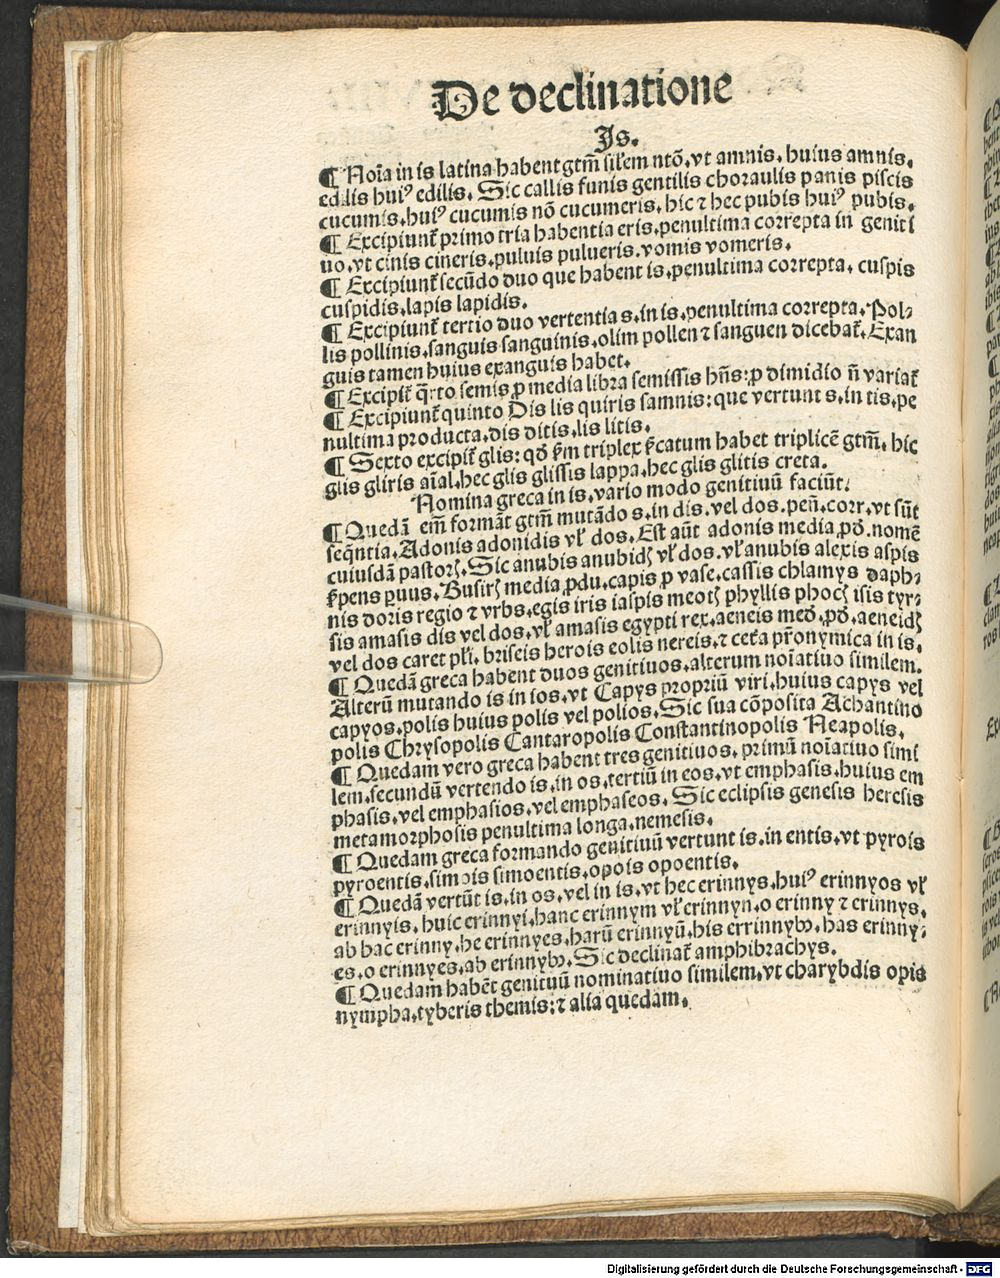 De declinatione
Is.
¶ Noīa in is latina habent gtm̄ silem ntō, vt amnis, huius amnis,
edilis huiꝰ edilis. Sic callis funis gentilis choraulis panis piscis
cucumis, huiꝰ cucumis nō cucumeris, hic ⁊ hec pubis huiꝰ pubis.
¶ Excipiunt᷑ primo tria habentia eris, penultima correpta in geniti
uo, vt cinis cineris, puluis pulueris, vomis vomeris.
¶ Excipiunt᷑ secūdo duo que habent is, penultima correpta, cuspis
cuspidis, lapis lapidis.
¶ Excipiunt᷑ tertio duo vertentia s, in is, penultima correpta. Pol⸗
lis pollinis, sanguis sanguinis, olim pollen ⁊ sanguen dicebat᷑. Exan
guis tamen huius exanguis habet.
¶ Excipit᷑ q̄rto semis, ꝓ media libra semissis hn̄s: ꝓ dimidio n̄ variat᷑
¶ Excipiunt᷑ quinto Dis lis quiris samnis: que vertunt s, in tis, pe
nultima producta, dis ditis, lis litis.
¶ Sexto excipit᷑ glis: qd̄ s̄m triplex s̄catum habet triplicē gtm̄, hic
glis gliris aīal, hec glis glissis lappa, hec glis glitis creta.
Nomina greca in is, vario modo genitiuū faciūt.
¶ Quedā em̄ formāt gtm̄ mutādo s, in dis, vel dos, pen̄. corr, vt sūt
seq̄ntia, Adonis adonidis vl̓ dos. Est aūt adonis media ꝓd. nomē
cuiusdā pastorꝫ. Sic anubis anubidꝫ vl̓ dos, vl̓ anubis alexis aspis
s̓pens puus, Busirꝫ media ꝓdu, capis ꝓ vase, cassis chlamys daph⸗
nis doris regio ⁊ vrbs, egis iris iaspis meotꝫ phyllis phocꝫ isis tyr⸗
sis amasis dis vel dos, vl̓ amasis egypti rex, aeneis med̄, ꝓd, aeneidꝫ
vel dos caret pl̓i, briseis herois eolis nereis, ⁊ cet̓a pr̄onymica in is,
¶ Quedā greca habent duos genitiuos, alterum noīatiuo similem.
Alterū mutando is in ios, vt Capys propriū viri, huius capys vel
capyos, polis huius polis vel polios. Sic sua cōposita Achantino
polis Chrysopolis Cantaropolis Constantinopolis Neapolis.
¶ Quedam vero greca habent tres genitiuos, primū noīatiuo simi
lem, secundū vertendo is, in os, tertiū in eos, vt emphasis, huius em
phasis, vel emphasios, vel emphaseos. Sic eclipsis genesis heresis
metamorphosis penultima longa, nemesis.
¶ Quedam greca formando genitiuū vertunt is, in entis, vt pyrois
pyroentis, simois simoentis, opois opoentis.
¶ Quedā vertūt is, in os, vel in is, vt hec erinnys, huiꝰ erinnyos vl̓
erinnyis, huic erinnyi, hanc erinnym vl̓ erinnyn, o erinny ⁊ erinnys,
ab hac erinny, he erinnyes, harū erinnyū, his errinnybꝰ, has erinny⸗
es, o erinnyes, ab erinnybꝰ. Sic declinat᷑ amphibrachys.
¶ Quedam habēt genitiuū nominatiuo similem, vt charybdis opis
nympha, tyberis themis: ⁊ alia quedam.
Digitalisierung gefördert durch die Deutsche Forschungsgemeinschaft - DFG